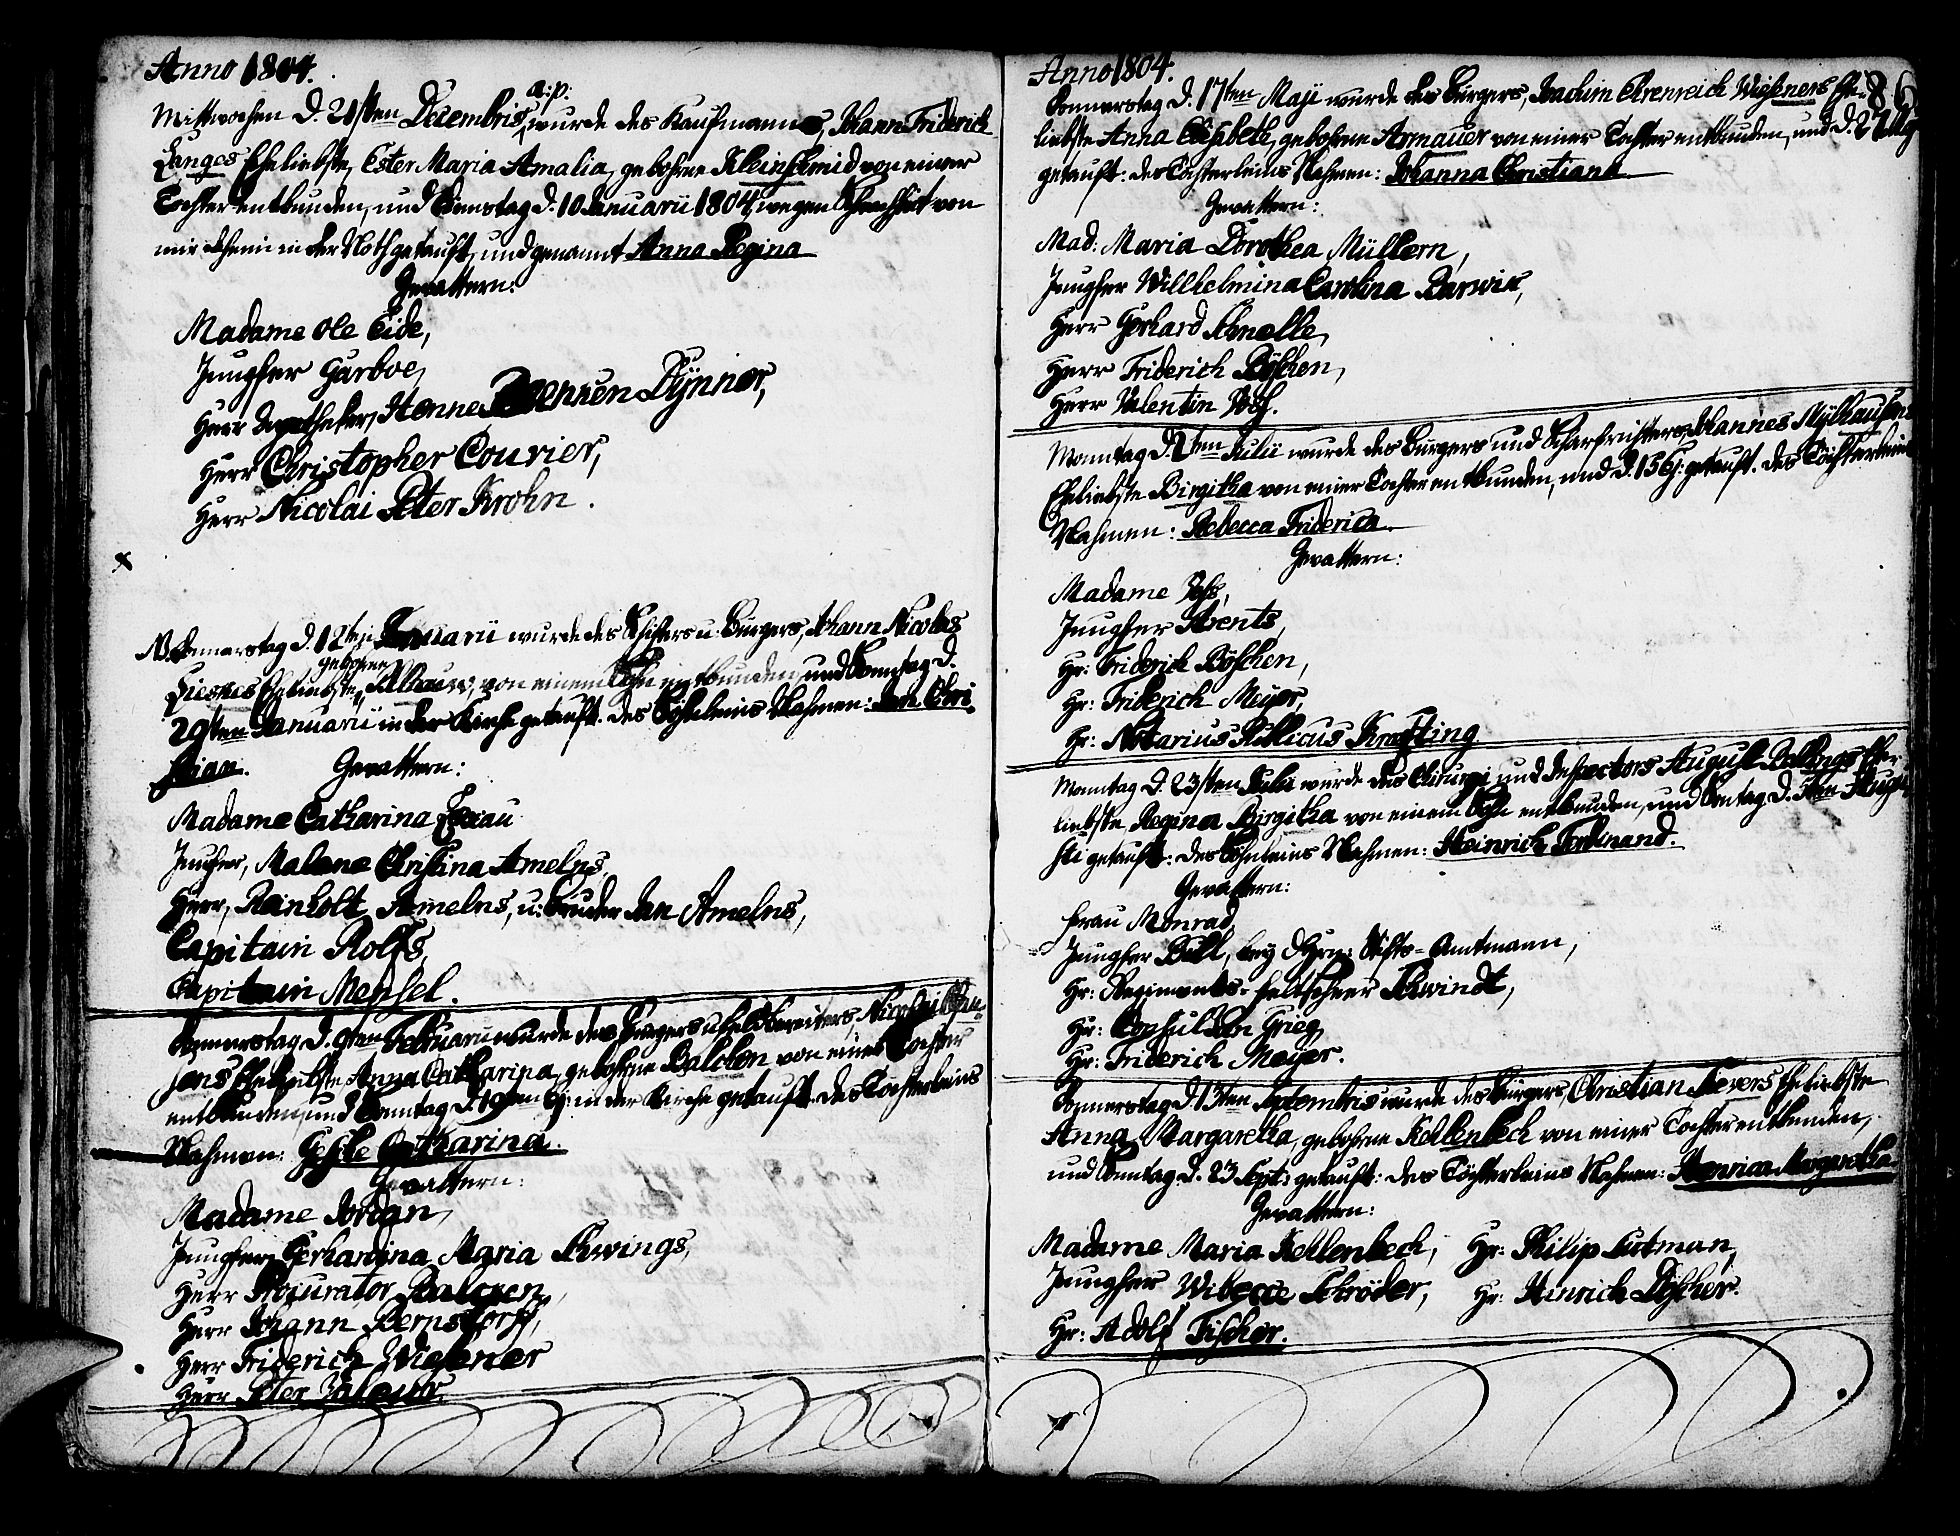 Anno 1804.
a: p:
Mittwochen d. 21sten Decembris, wurde des Kaufmannes, Johann Friderich
Langes Eheliebste, Ester Maria Amalia, gebohrne Kleinschmid von einer
Tochter entbunden, und Dienstag d. 10 Januarii 1804, wegen Schwachheit von
mir daheim in der Noth getauft, und genannt Anna Regina
Gevattern:
Madame Ole Eide,
Jungfer Garboe,
Herr Apotheker, Dynner,
Herr Christopher Courier,
Herr Nicolai Peter Krohn.
Donnerstag d. 12ten Januarii wurde des Schiffers u: Bürgers, Johann Nicolas
gebohrne
Lieskes Eheliebste, von einem Sohn entbunden, und Sonntag d.
29sten Januarii in der Kirche getauft. des Söhnleins Nahmen: Jan Chri
stian. Gevattern:
Madame Catharina
Jungfer, Malene Christina Amelns,
Herr, Reinholt Amelns, u: Bruder Jan Amelns,
Capitain Rolfs,
Capitain Mensel.
Donnerstag d. 9ten Februarii wurde des Bürgers u Feldbereiters, Nicolai Han-
sens Eheliebste Anna Catharina, gebohrne Balchen von einer Tochter
entbunden, und Sonntag d. 19ten ej: in der Kirche getauft. des Töchterleins
Nahmen: Gesche Catharina.
Gevattern:
Madame Jordan,
Jungfer Gerhardina Maria Schwings,
Herr Procurator Balchen,
Herr Johann Bernstorff,
Herr Friderich Wiesener
Herr Peter
Anno 1804.
86
Donnerstag d. 17ten Maji wurde des Bürgers, Joachim Ehrenreich Wiesners Ehe-
liebste Anna Elisabeth, gebohrne Armauer von einer Tochter entbunden, und d. 27
getauft: des Töchterleins Nahmen: Johanna Christiana
Gevattern:
Mad: Maria Dorothea Müllern,
Jungfer Willhelmina Carolina Barwik,
Herr Gerhard Schmelle,
Herr Friderich Böschen,
Herr Valentin Voss.
Monntag d. 2ten Julii wurde des Bürgers und Scharfrichters, Johannes Mylhausens
Eheliebste Birgitha von einer Tochter entbunden, und d. 15 ej: getauft. des Töchterleins
Nahmen: Rebecca Friderica
Gevattern:
Madame Voss,
Jungfer Arents,
Hr: Friderich Böschen,
Hr: Friderich Meyer,
Hr: Notarius Publicus Krafting
Monntag d. 23sten Julii wurde des Chirurgi und Inspectors August Bullings Ehe-
liebste Regina Birgitha von einem Sohn entbunden, und Sontag d. 5ten Augu-
sti getauft: des Söhnleins Nahmen: Heinrich Ferdinand.
Gevattern:
Frau Monrad,
Jungfer Bull, bey d Hrn: Stifts-Amtmann,
Hr: Regiments-Feltscheer Schwindt,
Hr: Consul John Grieg,
Hr: Friderich Meyer.
Donnerstag d. 13ten Septembris wurde des Bürgers, Christian Sievers Eheliebste
Anna Margaretha, gebohrne Kehlenbech von einer Tochter entbunden,
und Sonntag d. 23 Sept: getauft: des Töchterleins Nahmen: Henrica Margaretha
Gevattern:
Madame Maria Kehlenbech, Hr: Philip Gutman,
Jungfer Wibecce Schröder, Hr: Hinrich Döscher.
Hr: Adolf Fischer.